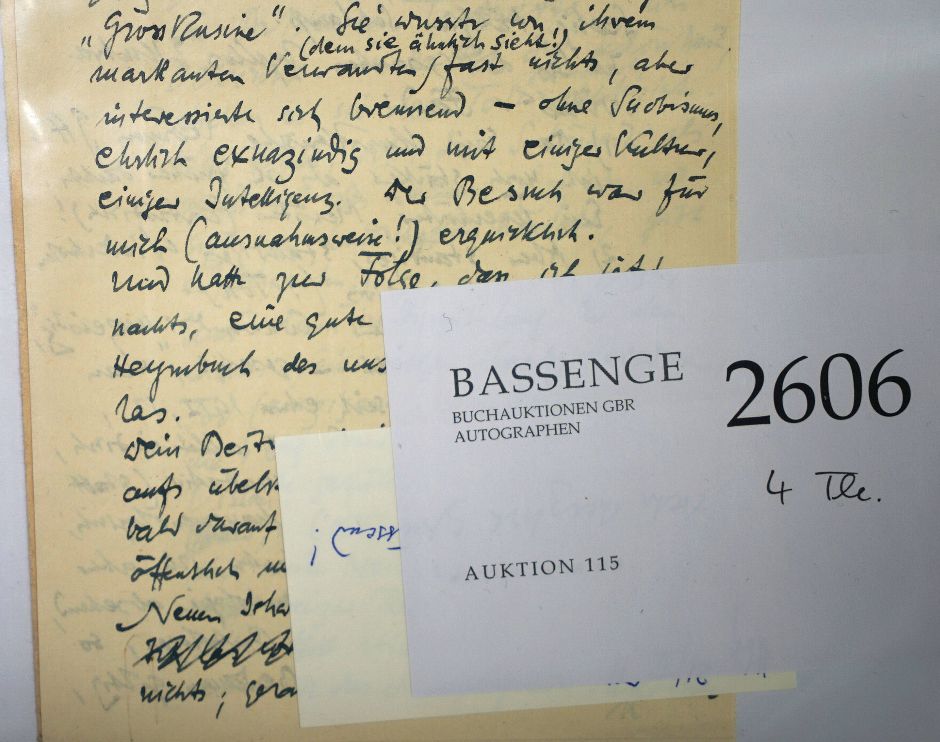 „Grosskusine". Sie wusste von ihrem
(dem sie ähnlich sieht!)
markanten Verwandten fast nichts, aber
interessierte sich brennend – ohne Snobismus,
ehrlich und mit einiger Kultur,
einiger Intelligenz. Der Besuch war für
mich (ausnahmsweise!) erquicklich.
Und hatte zur Folge, dass ich jetzt
nachts, eine gute
Heymbuch des uns
las.
Dein Beitr
aufs übels
bald darauf
öffentlich
Neuen
nichts; gera
BASSENGE
BUCHAUKTIONEN GBR
AUTOGRAPHEN
2606
4 Tle.
AUKTION 115